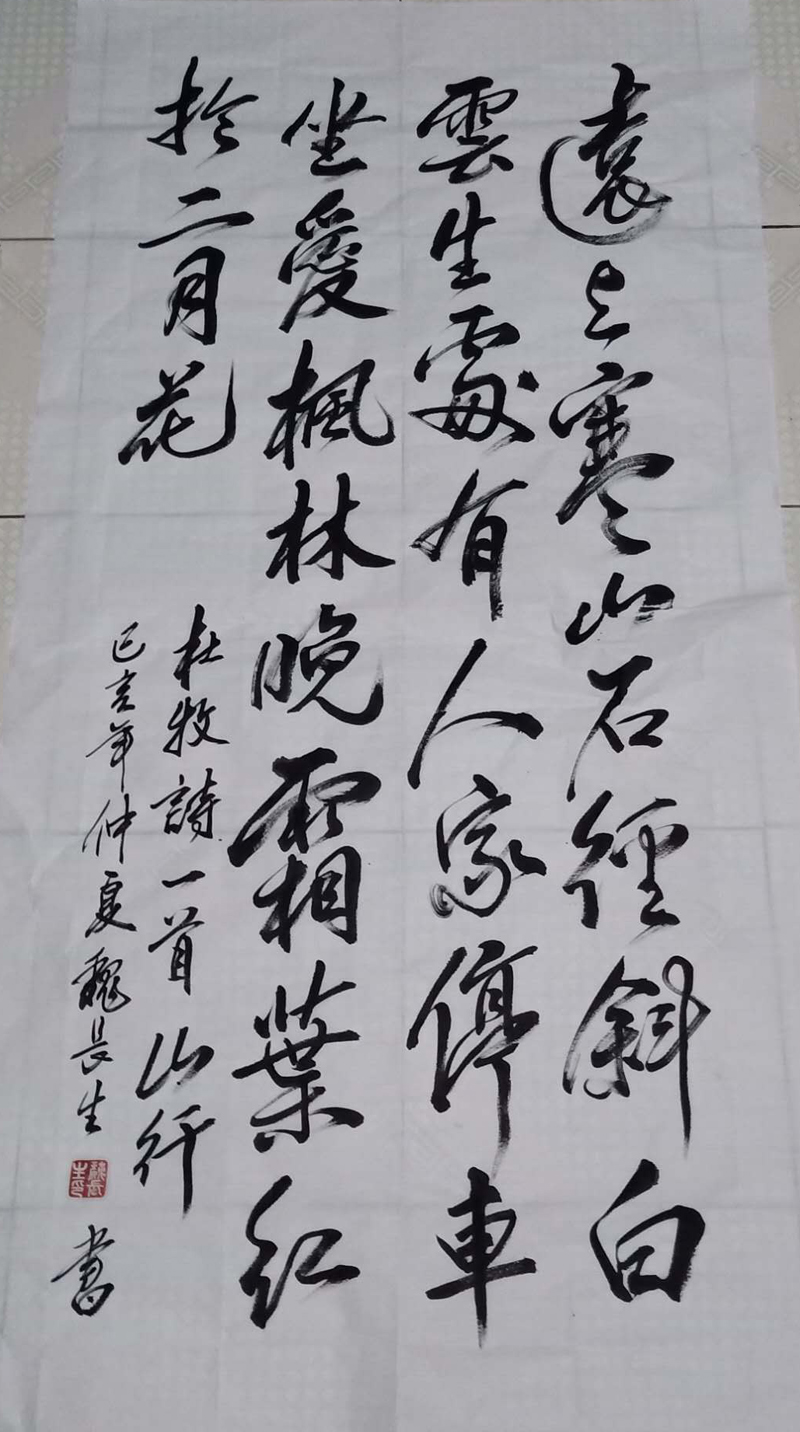 遠上寒山石徑斜白
雲生處有人家停車
坐愛楓林晚霜葉紅
於二月花
杜牧詩一首山行
己亥年仲夏魏長生書
魏長生印